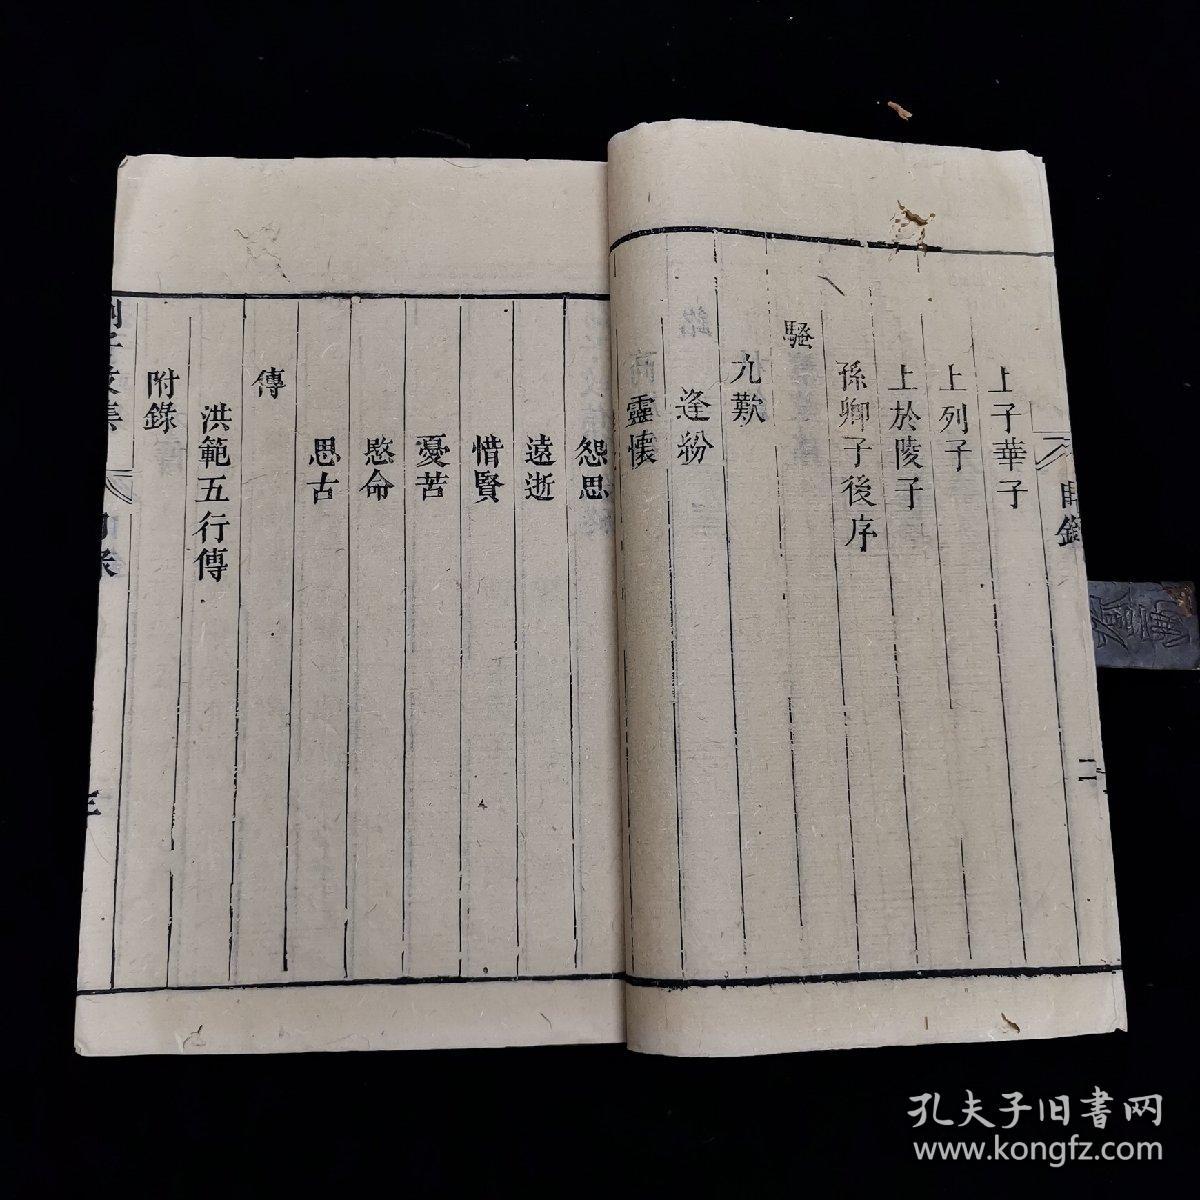 目錄
二
上子華子
上列子
上於陵子
孫卿子後序
騷
九歎
逢紛
靈懷
怨思
遠逝
惜賢
憂苦
愍命
思古
傳
洪範五行傳
附錄
三
孔夫子旧书网
www.kongfz.com